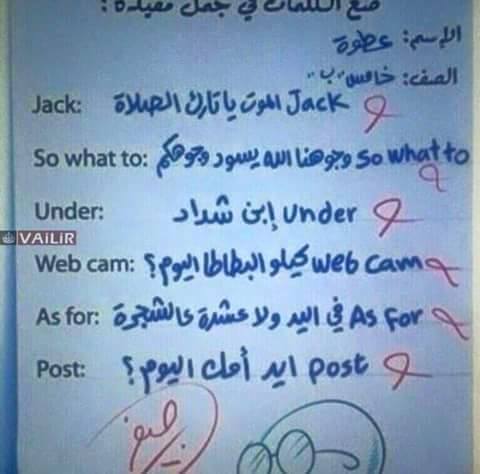 ضع الكلمات في جمل مفيدة :
الإسم: عطوة
الصف: خامس "ب"
Jack: Jack الموت يا تارك الصلاة
So what to: so what to وجوهنا الله يسود وجوهكم
Under: under إبن شداد
VAiLiR
Web cam: web cam كيلو البطاطا اليوم؟
As for: As for في اليد ولا عشرة عالشجرة
Post: post ايد أمك اليوم؟